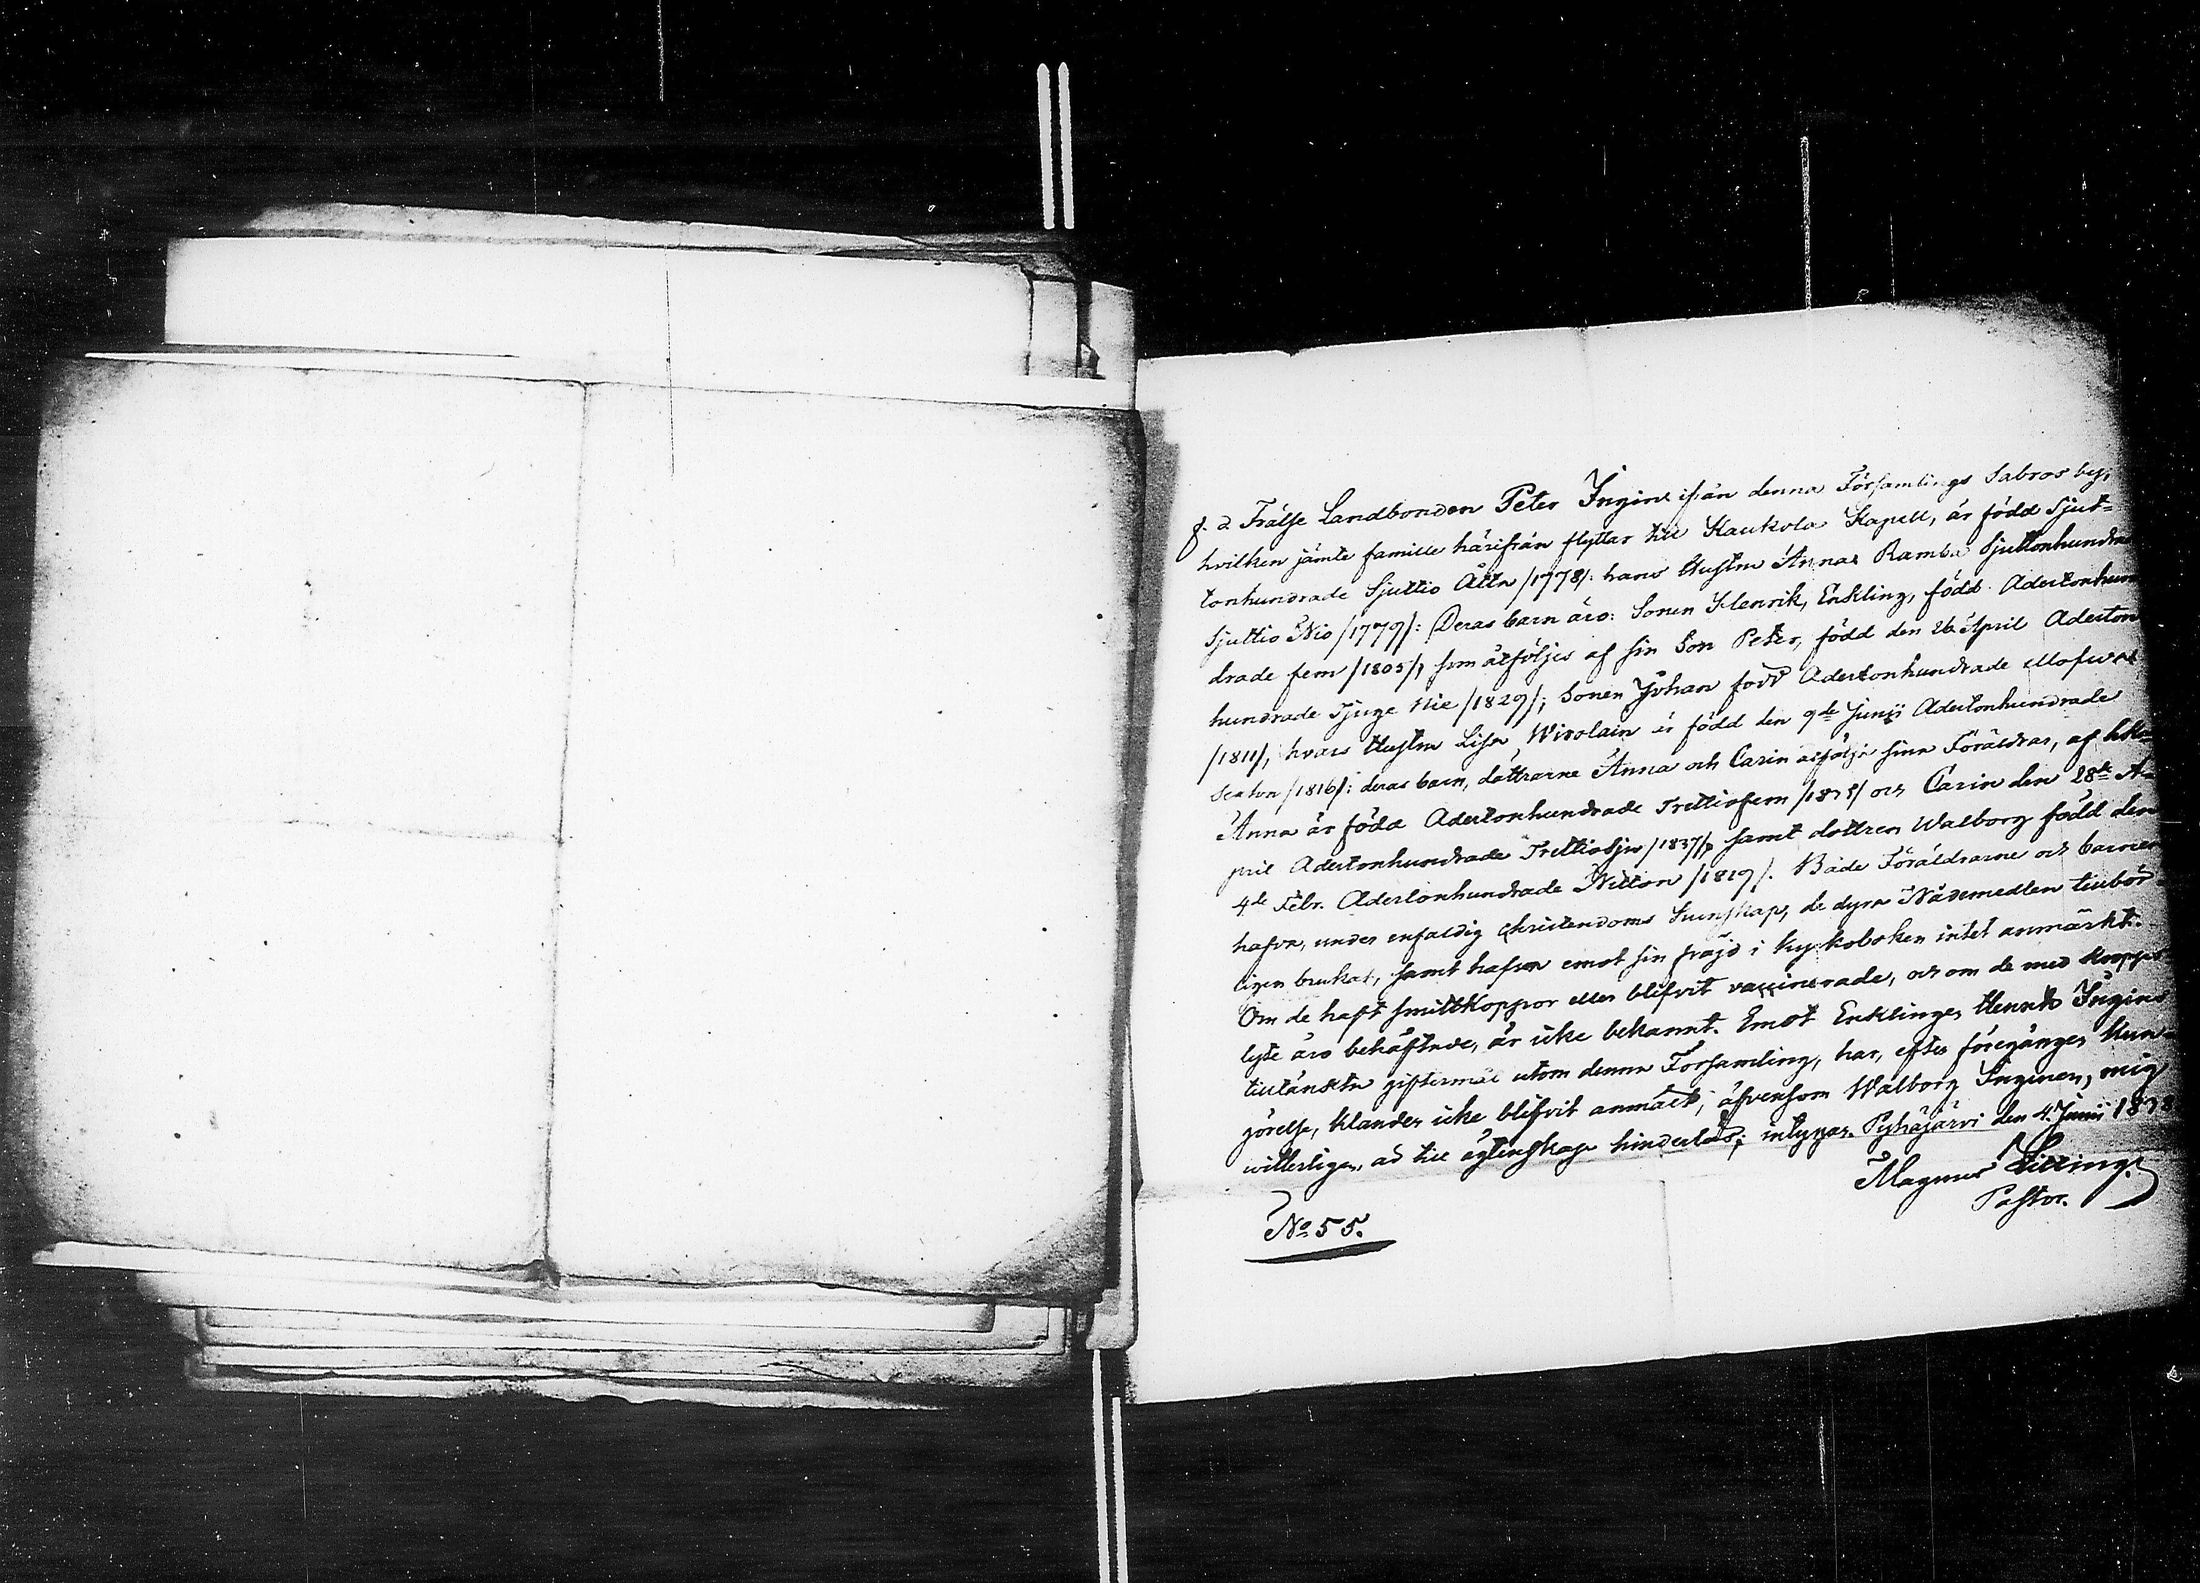 f. d. Frälse Landbonden Peter Ingine ifrån denna Församlings Sabros by,
hvilken jämte famille härifrån flyttar till Kaukola Kapell, är född Sjut-
tonhundrade Sjuttio Åtta /1778/: hans Hustru Anna Ramba Sjuttonhundra
Sjuttio Nio /1779/: Deras barn äro: Sonen Henrik, Enkling, född Adertonhun
drade fem /1805/, som åtföljes af sin Son Peter, född den 26 April Aderton
hundrade Tjuge Nie /1829/; Sonen Johan född Adertonhundrade ellofwa
/1811/, hvars Hustru Lisa Wirolain är född den 9de Junii Adertonhundrade
Sexton /1816/: deras barn, döttrarne Anna och Carin åtfölja sina Föräldrar, af hka
Anna är född Adertonhundrade Trettiofem /1835/ och Carin den 28de A-
pril Adertonhundrade Trettiosju /1837/, samt dottren Walborg född den
4de Febr. Adertonhundrade Nitton /1819/. Både Föräldrarne och barnen
hafva, under enfaldig Christendoms kunskap, de dyra Nådemedlen tillbör-
ligen brukat, samt hafva emot sin fräjd i kyrkoboken intet anmärkt.
Om de haft smittkoppor eller blifvit vaccinerade, och om de med koppor
lyte äro behäftade, är icke bekannt. Emot Enklingen Henrik Ingines
tilltänkta giftermål utom denna Församling, har, efter föregången kun-
görelse, klander icke blifvit anmält; äfvensom Walborg Inginen, mig
witterligen, är till ägtenskap hinderlös; intygar. Pyhäjärvi den 4. Junii 1838
Magnus
Pastor.
No 55.